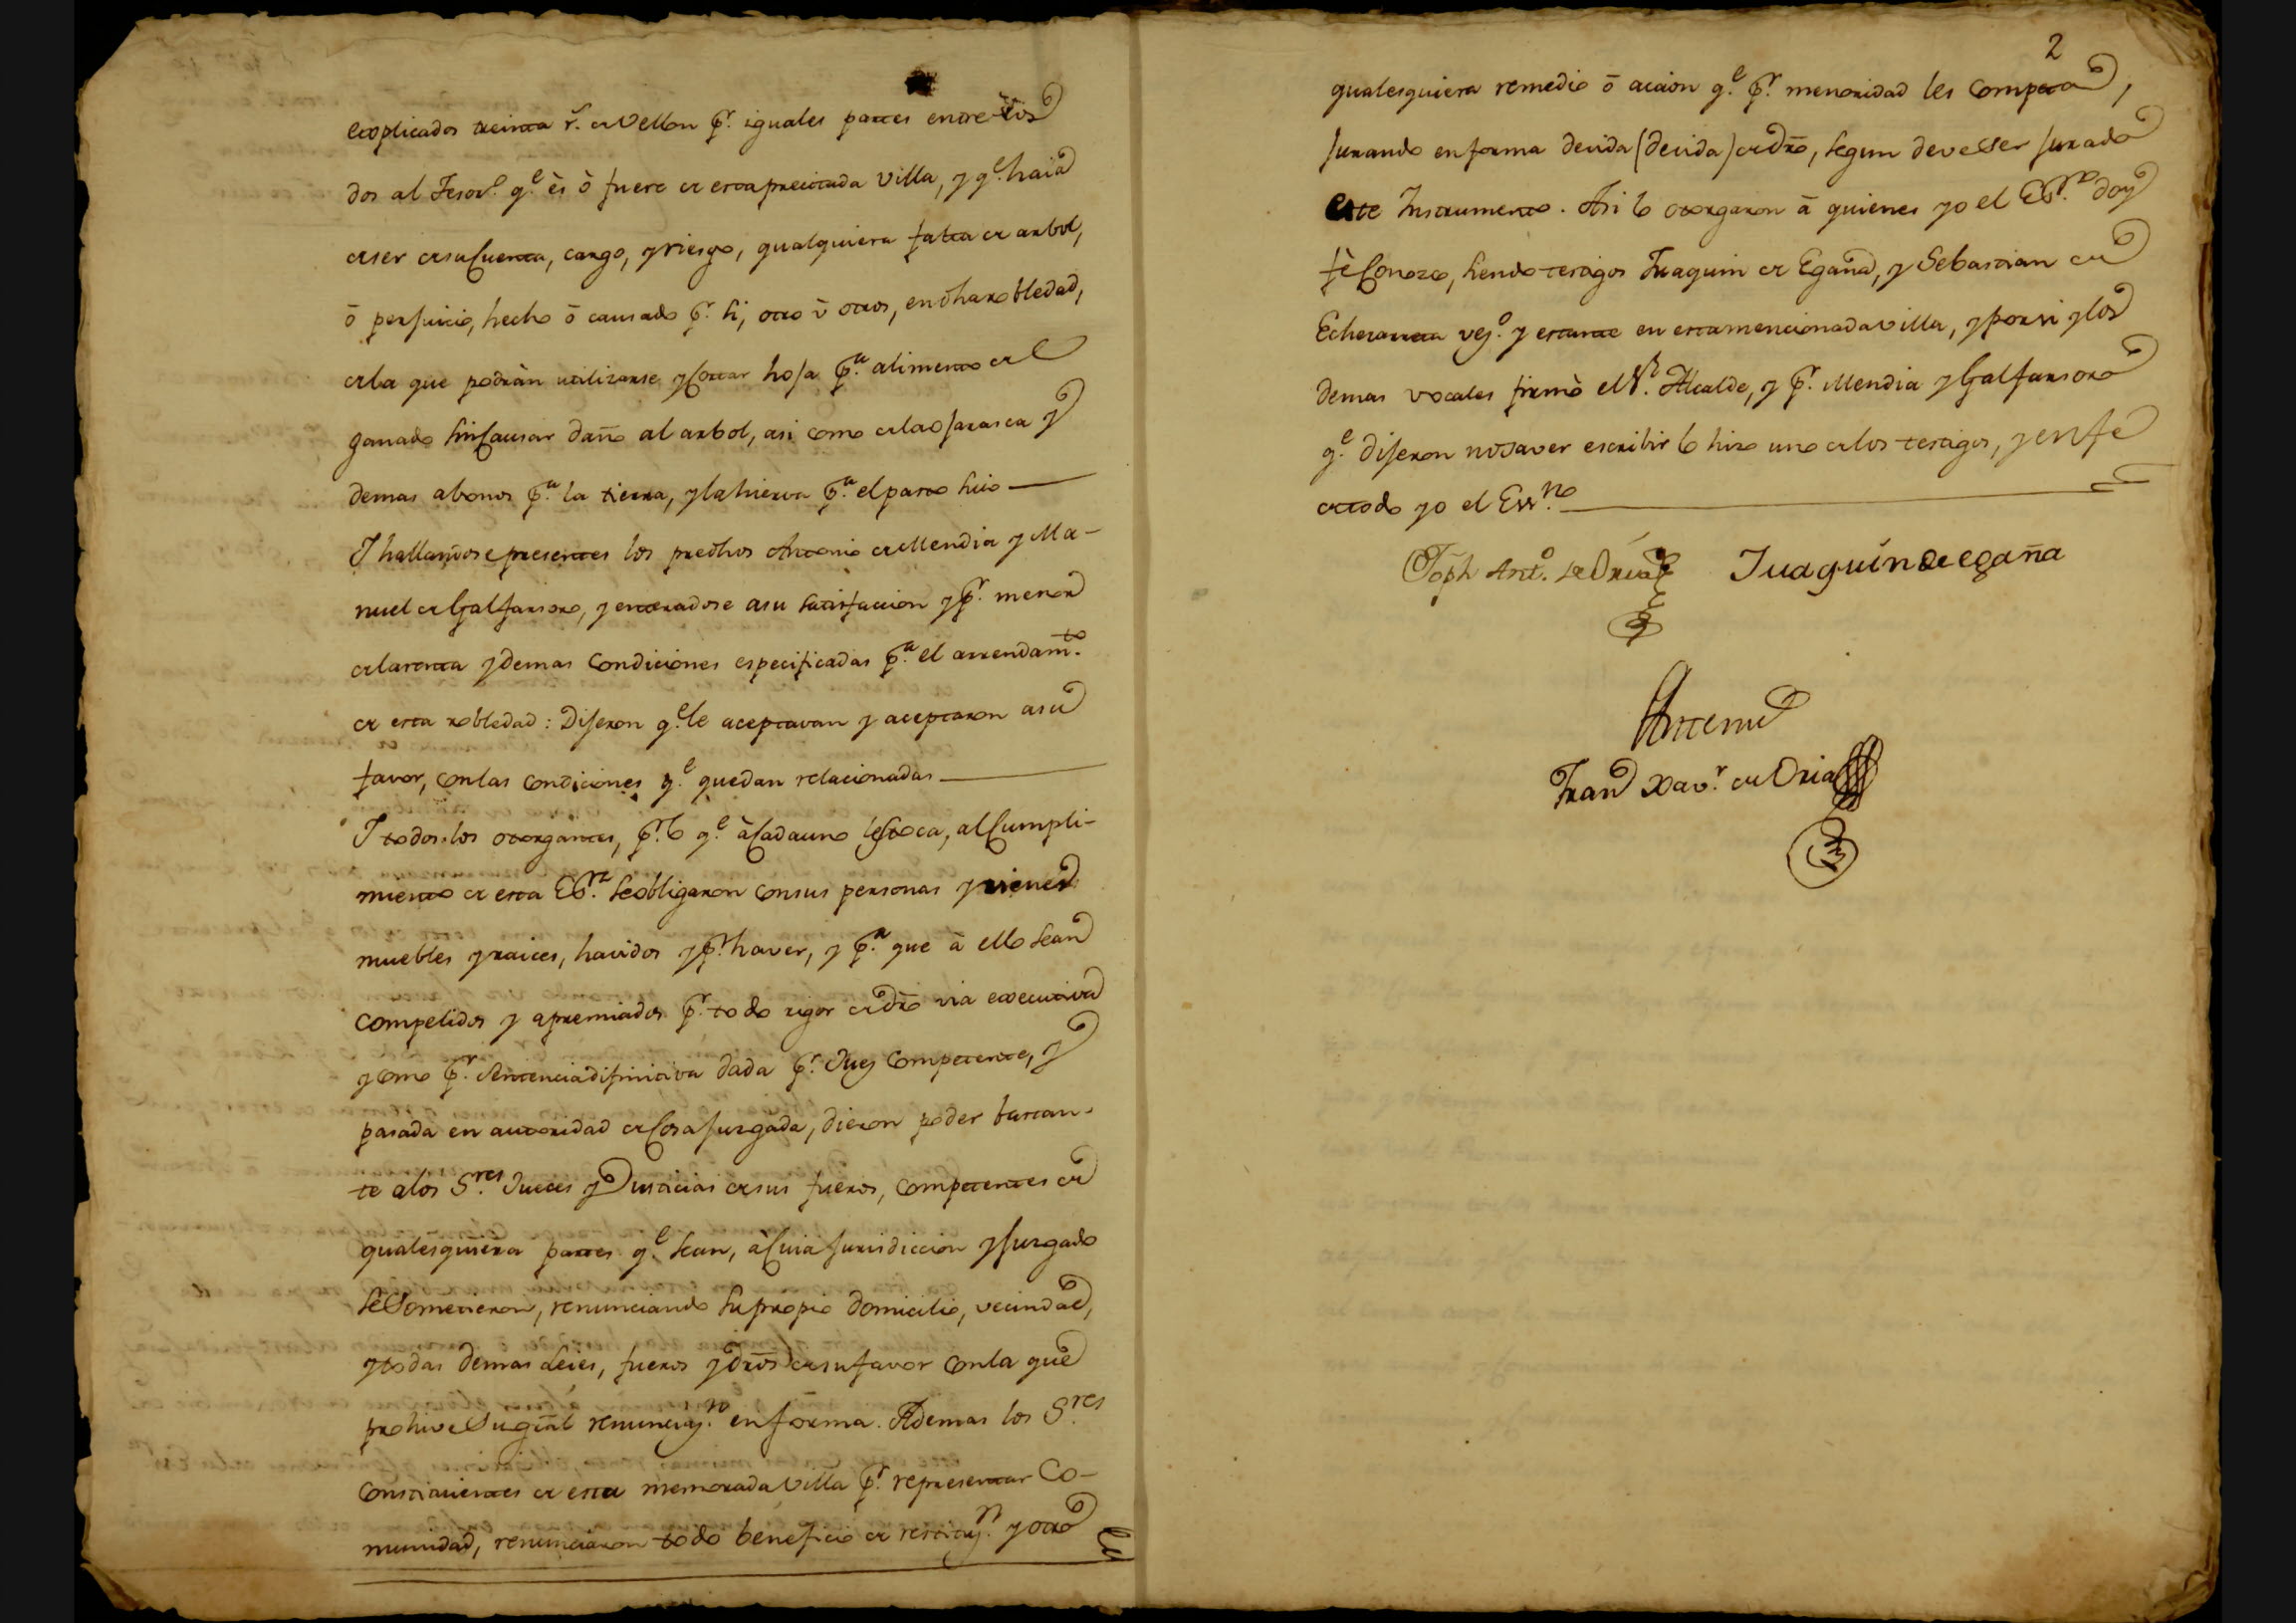 explicados treinta r.s de Vellon p.r iguales partes entre los
dos al Tesor.o q.e ès ò fuere de esta precitada Villa, y q.e haia
de ser de su Cuenta, cargo, y riesgo, qualquiera falta de arbol,
ō perjuicio, hecho ō causado p.r si, otro ù otros, en dha robledad,
de la que podràn utilizarse y Cortar hoja p.a alimento de el
ganado sin Causar daño al arbol, asi como de la ojarasca y
demas abonos p.a la tierra, y la hierva p.a el pasto suio
I hallandose presentes los predhos Antonio de Mendia y Ma-
nuel de Galfarsoro, y enterados e a su satisfaccion y p.r menor
de la renta y demas Condiciones especificadas p.a el arrendam.to
de esta robledad: Dijeron q.e le aceptavan y aceptaron a su
favor, con las Condiciones q.e quedan relacionadas
I todos los otorgantes, p.r lo q.e à Cada uno les toca, al Cumpli-
miento de esta Es.ra se obligaron con sus personas y vienes
muebles y raices, havidos y p.r haver, y p.a que à ello sean
compelidos y apremiados p.r todo rigor de dro via executiva
y como p.r Sentencia difinitiva dada p.r Juez Competente, y
pasada en autoridad de Cosa juzgada, dieron poder bastan-
te a los S.res Jueces y Justicias de sus fueros, competentes de
qualesquiera partes q.e sean, à Cuia jurisdiccion y juzgado
se Sometieron, renunciando su propio domicilio, vecindad,
y todas demas Leies, fueros y dros de su favor con la que
prohive Su gral renunciaz.n en forma. Ademas los S.res
Constituientes de esta memorada Villa p.r representar Co-
munidad, renunciaron todo beneficio de restituz.n y otro
2
qualesquiera remedio ō accion q.e p.r menoridad les Competa,
jurando en forma devida (devida) de dro, segun deve Ser jurado
este Instrumento. Asi lo otorgaron à quienes yo el Es.no doy
fè Conozco, siendo testigos Juaquin de Egaña, y Sebastian de
Echezarreta vez.s y estante en esta mencionada villa, y por si y los
demas vocales firmò el S.r Alcalde, y p.r Mendia y Galfarsoro
q.e dijeron no Saver escribir lo hizo uno de los testigos, y en fe
de todo yo el Ess.no
Joph Ant.o de Oria Juaquín de egaña
Ante mi
Fran Xav.r de Oria